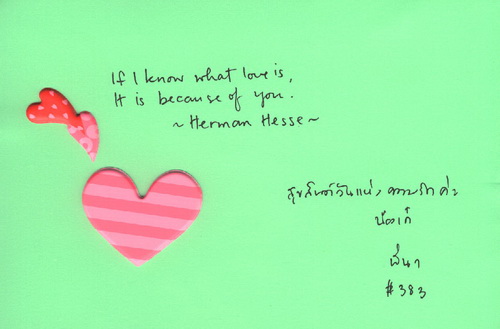 If I know what love is,
It is because of you.
~ Herman Hesse ~
สุขสันต์วันแห่งความรักค่ะ
#383